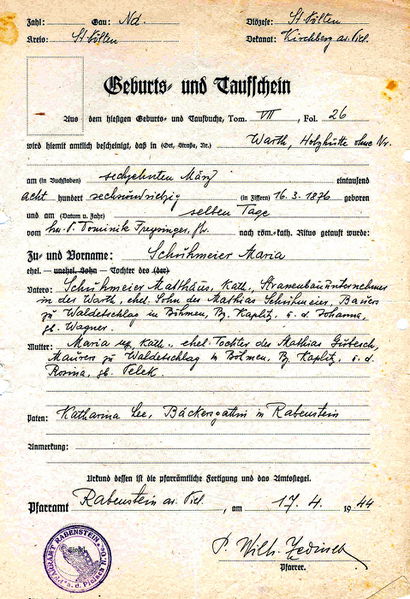 Zahl: Gau: Nd. Diözese: St. Pölten
Kreis: St. Pölten Dekanat: Kirchberg a. Piel.
Geburts- und Taufschein
Aus dem hiesigen Geburts- und Taufbuche, Tom. VII, Fol. 26
wird hiemit amtlich bescheinigt, daß in (Ort, Straße, Nr.) Warth, Holzhütte ohne Nr.
am (in Buchstaben) sechzehnten März eintausend
acht hundert sechsundsiebzig (in Ziffern) 16.3.1876 geboren
und am (Datum u. Jahr) selben Tage
vom hw. P. Dominik nach röm.-kath. Ritus getauft wurde:
Zu- und Vorname: Schuhmeier Maria
ehel. unehel. Sohn Tochter des (der)
Vaters: Schuhmeier Matthäus, Kath., Strassenbauunternehmer
in der Warth, ehel. Sohn des Mathias Schuhmeier, Bauers
zu Waldetschlag in Böhmen, Bz. Kaplitz, u. d. Johanna,
gb. Wagner.
Mutter: Maria Kath., ehel. Tochter des Mathias
Maurers zu Waldetschlag in Böhmen, Bz. Kaplitz, u. d.
Rosina, gb. Pelek.
Paten: Katharina Lee, Bäckersgattin in Rabenstein
Anmerkung:
Urkund dessen ist die pfarrämtliche Fertigung und das Amtssiegel.
Pfarramt Rabenstein a. Piel. am 17.4.1944
P. Wilh.
Pfarrer.
PFARRAMT RABENSTEIN a. d. Pielach